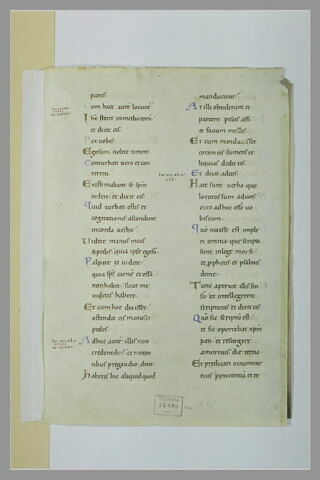 panis.
um haec autē locunt̄
Ih̄c stetit in medio eorū
et dicit eis.
Pax uobis.
Ego sum nolite timere
Conturbati uero et con
territi
Existimabant se sp̄m
uidere et dixit eis
Quid turbati estis et
cogitationes ascendunt
in corda uestra
Videte manus meas
& pedes quia ipse ego sū
Palpate et uidete
quia sp̄s carnē et ossa
non habet sicut me
uidetis habere
Et cum hoc dixisset
ostendit eis manus et
pedes
Adhuc autē illis non
credentibus et miran
tibus prę gaudio dixit
Habetis hic aliquid quod
manducetur
At illi obtulerunt ei
partem piscis assi
et fauum mellis
Et cum manducasset
coram eis sumens re
liquias dedit eis
Et dixit ad eos
Haec sunt uerba quę
locutus sum ad uos
cum adhuc essē uo
biscum
Quō necesse est imple
ri omnia quę scripta
sunt in lege moysi
et p̄phetis et psalmis
de me
Tunc aperuit illis sen
sū ut intellegerent
scripturas et dixit eis
Quō sic scriptū est
et sic oportebat xp̄m
pati et resurgere
a mortuis die tertia
Et prędicari in nomine
eius penitentiā et re